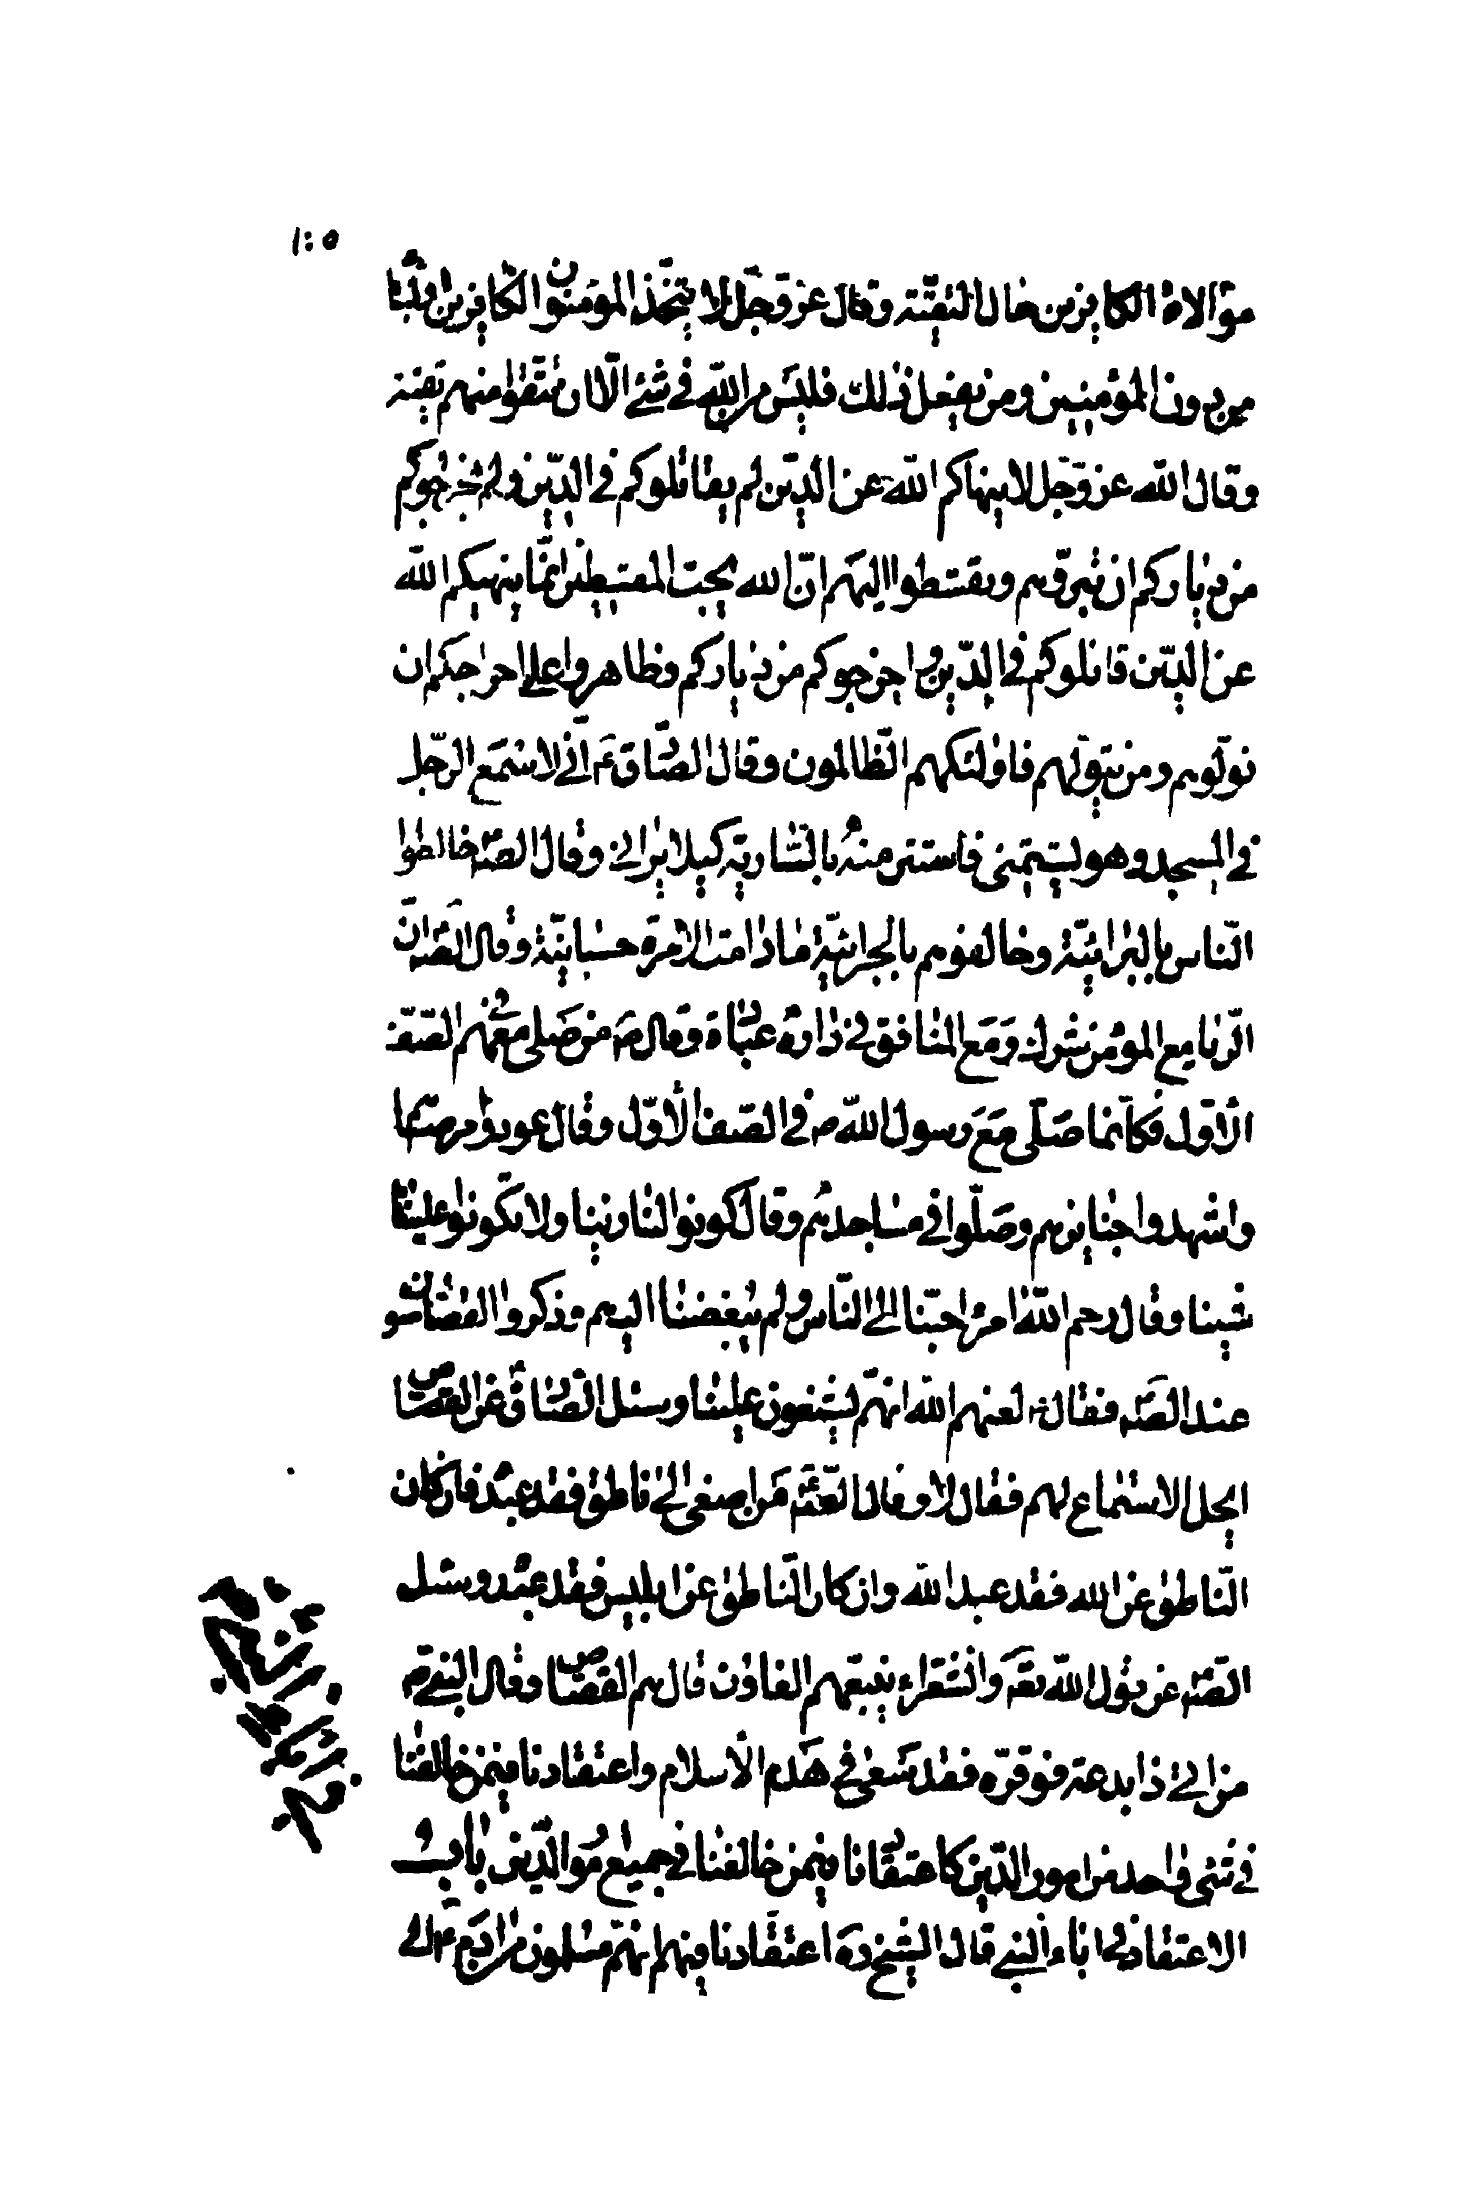 ١٠٥
موالاة الكافرين حال التقية وقال عز وجل لا يتخذ المؤمنون الكافرين اولياء
من دون المؤمنين ومن يفعل ذلك فليس من الله في شئ الّا ان تتقوا منهم تقية
وقال الله عز وجل لا ينهاكم الله عن الذين لم يقاتلوكم في الدين ولم يخرجوكم
من دياركم ان تبروهم وتقسطوا اليهم انّ الله يحب المقسطين انما ينهيكم الله
عن الذين قاتلوكم في الدين واخرجوكم من دياركم وظاهروا على اخراجكم ان
تولوهم ومن يتولهم فاولئك هم الظالمون وقال الصادق ع انّي لاسمع الرجل
في المسجد وهو يشتمني فاستتر منه بالسارية كيلا يراني وقال الصه خالطوا
الناس بالبرانية وخالفوهم بالجوانية ما دامت الامرة صبيانية وقال الصه انّ
الريا مع المؤمن شرك ومع المنافق في داره عبادة وقال ع من صلى معهم الصف
الاول فكانما صلى مع رسول الله ص في الصف الاول وقال عودوا مرضاهم
واشهدوا جنايزهم وصلوا في مساجدهم وقال كونوا لنا زينا ولا تكونوا علينا
شينا وقال رحم الله امرء احبنا الى الناس ولم يبغضنا اليهم وذكروا القصاصون
عند الصه فقال لعنهم الله انهم يشنعون علينا وسئل الصادق عن القصاص
ايحل الاستماع لهم فقال لا وقال الصه من اصغى الى ناطق فقد عبده فان كان
الناطق عن الله فقد عبد الله وان كان الناطق عن ابليس فقد عبده وسئل
الصه عن قول الله تعه والشعراء يتبعهم الغاون قال هم القصاص وقال النبي ص
من اتى ذا بدعة فوقره فقد سعى في هدم الاسلام واعتقادنا فيمن خالفنا
في شئ واحد من امور الدين كاعتقادنا فيمن خالفنا في جميع امور الدين باب
الاعتقاد في اباء النبي قال الشيخ ره اعتقادنا فيهم انهم مسلمون من ادم ع الى